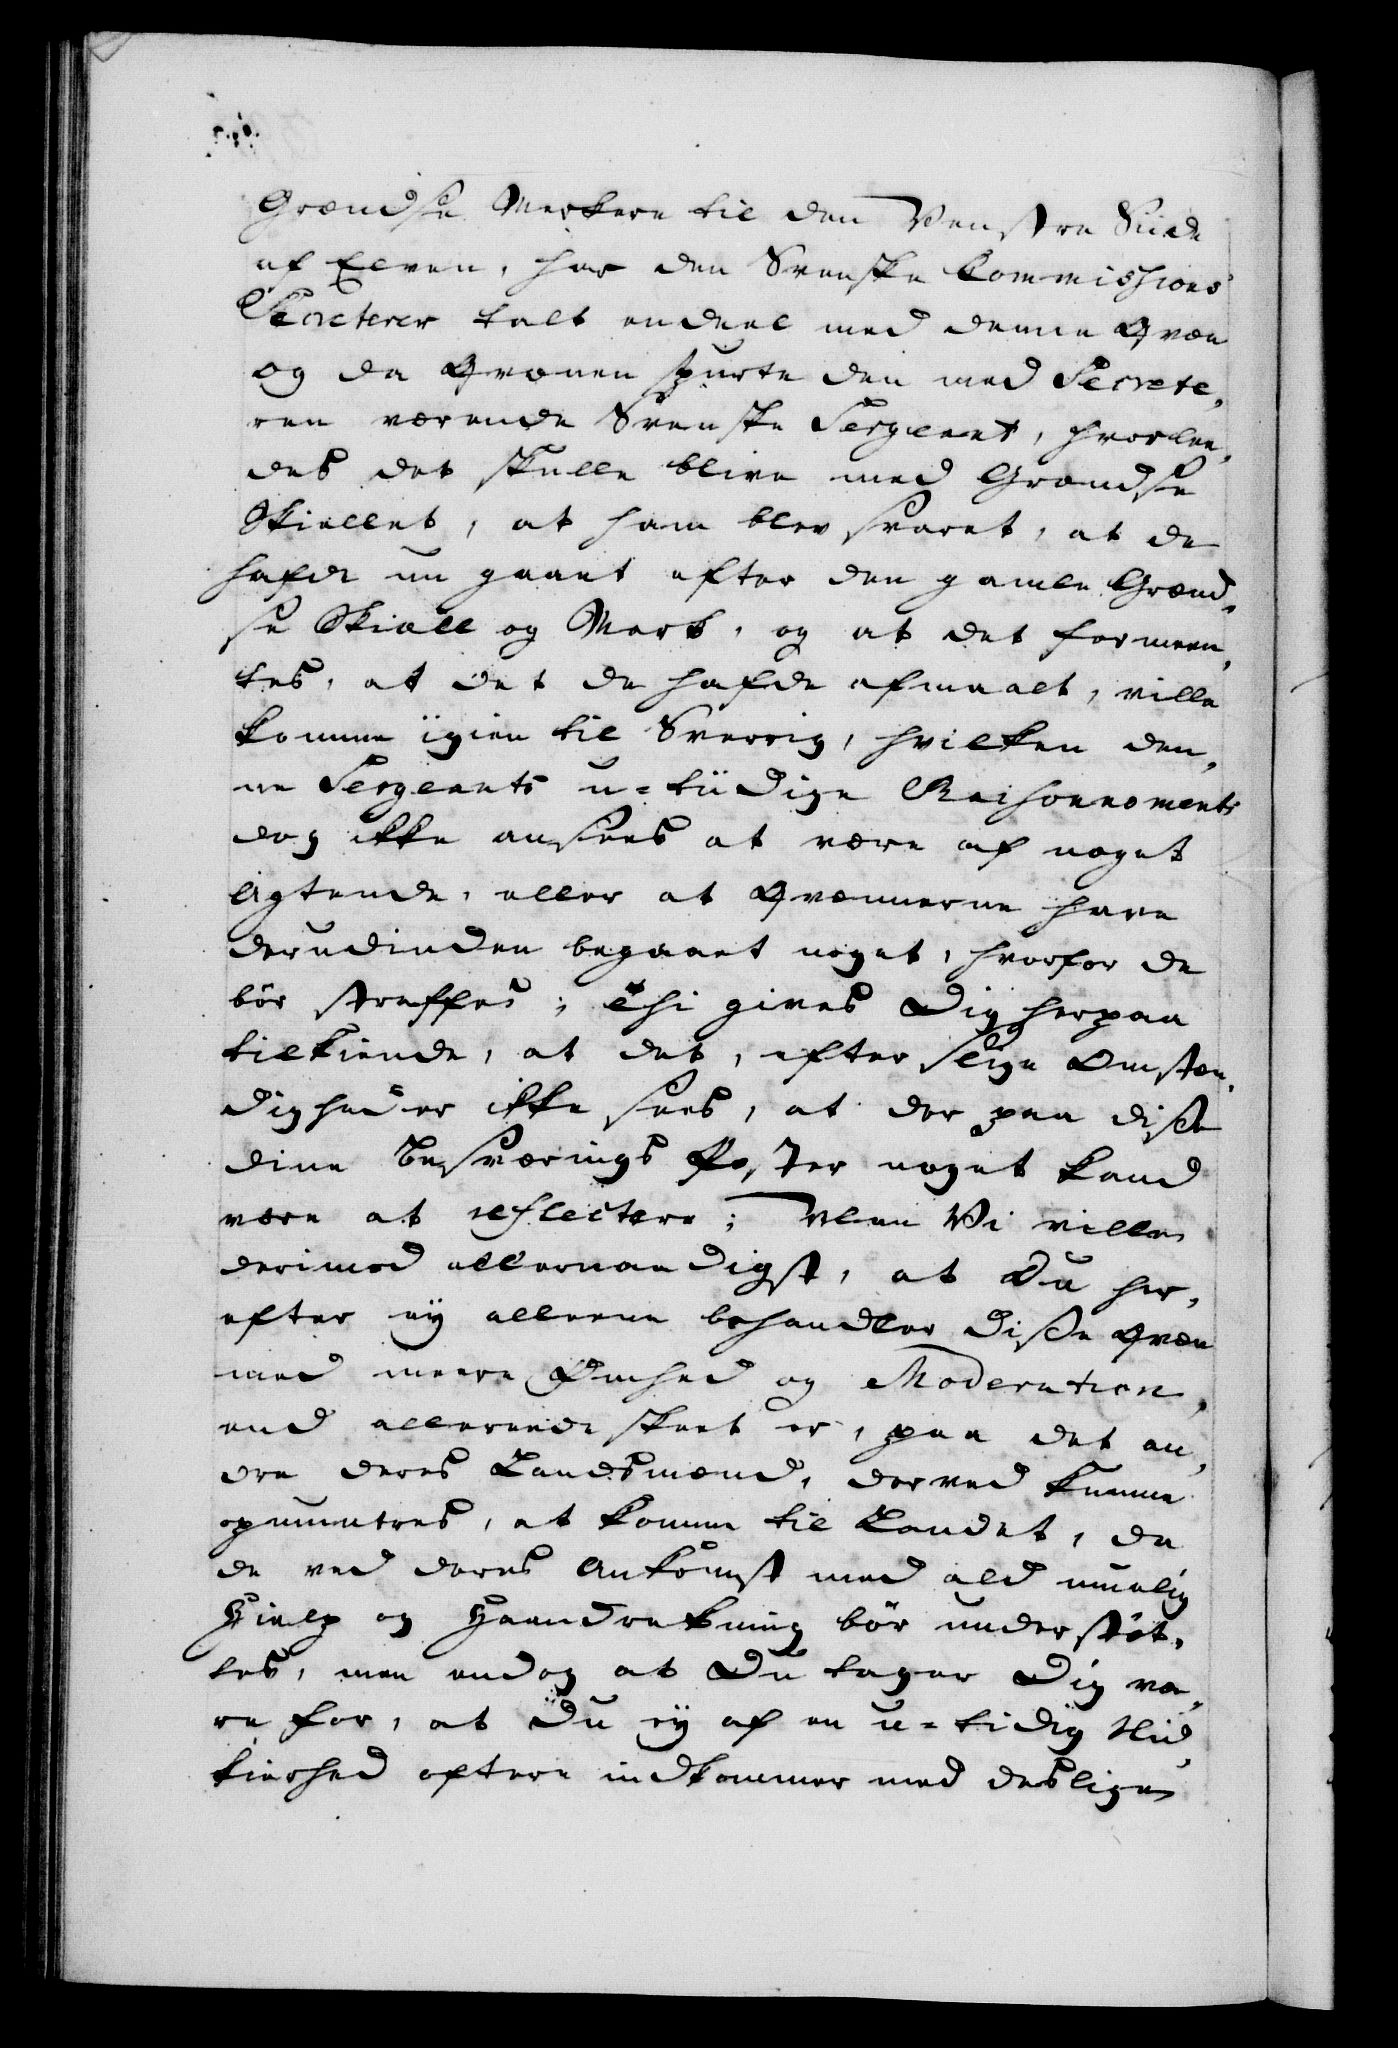 Grændse Merkere til den Venstre Siide
af Elven, har den Svenske Commissions
Secreterer talt endeel med denne Qvæn
og da Qvænen spurte den med Secrete,
ren værende Svenske Sergeant, hvorlee,
des det skulle blive med Grændse
Skiellet, at ham blev svaret, at de
hafde nu gaaet efter den gamle Grænd,
se Skiæll og Merk, og at det formeen,
tes, at det de hafde afmaalt, ville
komme igien til Sverrig, hvilken den,
ne Sergeants u-tiidige Raisonnements
dog ikke ansees at være af noget
Agtende, eller at Qvænnerne have
derudinden begaaet noget, hvorfor de
bør straffes; Thi gives Dig herpaa
tilkiende, at det, efter slige Omstæn,
digheder ikke sees, at der paa disse
dine Besværings Poster noget kand
være at reflectere; Men Vi ville
derimod allernaadigst, at Du her,
efter ey alleene behandler disse Qvæn
med meere Ømhed og Moderation,
end allereede skeet er, paa det an,
dre deres Landsmænd, derved kunne
opmuntres, at komme til Landet, da
de ved deres Ankomst med ald muelig
Hielp og Haandrekning bør understøt,
tes, men endog at Du tager Dig va,
re for, at Du ey af en u-tidig Nid,
kierhed oftere indkommer med deslige